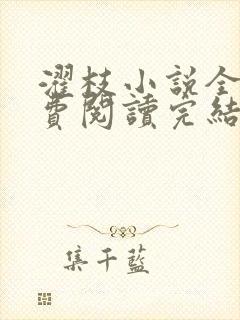 濯枝小說全
費閱讀完結
集千藍